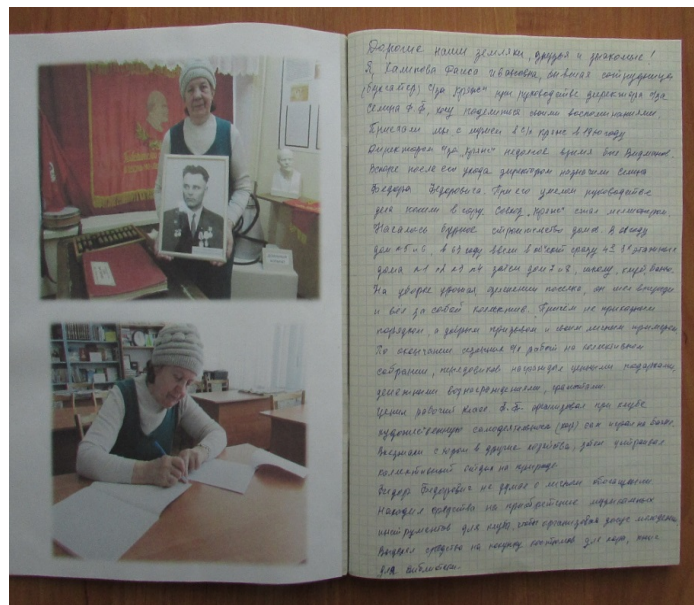 Дорогие наши земляки, друзья и знакомые!
Я, Калепова Фаиса Ивановна, бывшая сотрудница
(бухгалтер) с/за "Кряж" при руководстве директора с/за
Селина Ф.Ф., хочу поделиться своими воспоминаниями
Приехали мы с мужем в с/з Кряж в 1960 году
Директором с/за "Кряж" недолгое время был
Вскоре после его ухода директором назначили Селина
Федора Федоровича. При его умелом руководстве
дела пошли в гору. Совхоз "Кряж" стал миллионером.
Началось бурное строительство домов. В году
дом №5 и 6, в 67 году ввели в сразу 4 этажных
дома №1 №2 №3 №4 затем дом 7 и 8, школу, клуб, баню.
На уборке урожая, озеленении поселка, он шел впереди
и вел за собой коллектив. Причем не приказным
порядком, а добрым призывом и своим личным примером.
По окончании сезонных работ на коллективном
собрании, передовиков награждал ценными подарками,
денежными вознаграждениями, грамотами.
Ценил рабочий класс. Ф.Ф. организовал при клубе
художественную самодеятельность (хор) сам играл на баяне.
Выезжали с хором в другие хозяйства, затем устраивал
коллективный отдых на природе.
Федор Федорович не думал о личном обогащении.
Находил средства на приобретение музыкальных
инструментов для клуба, чтобы организовать досуг молодежи,
Выделял средства на покупку костюмов для хора, книг
для библиотеки.